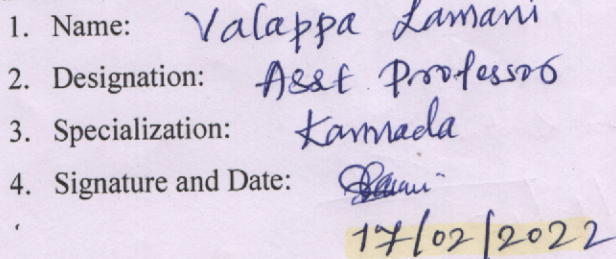 1. Name: Valappa Lamani
2. Designation: Asst Professor
3. Specialization: Kannada
4. Signature and Date:
17/02/2022